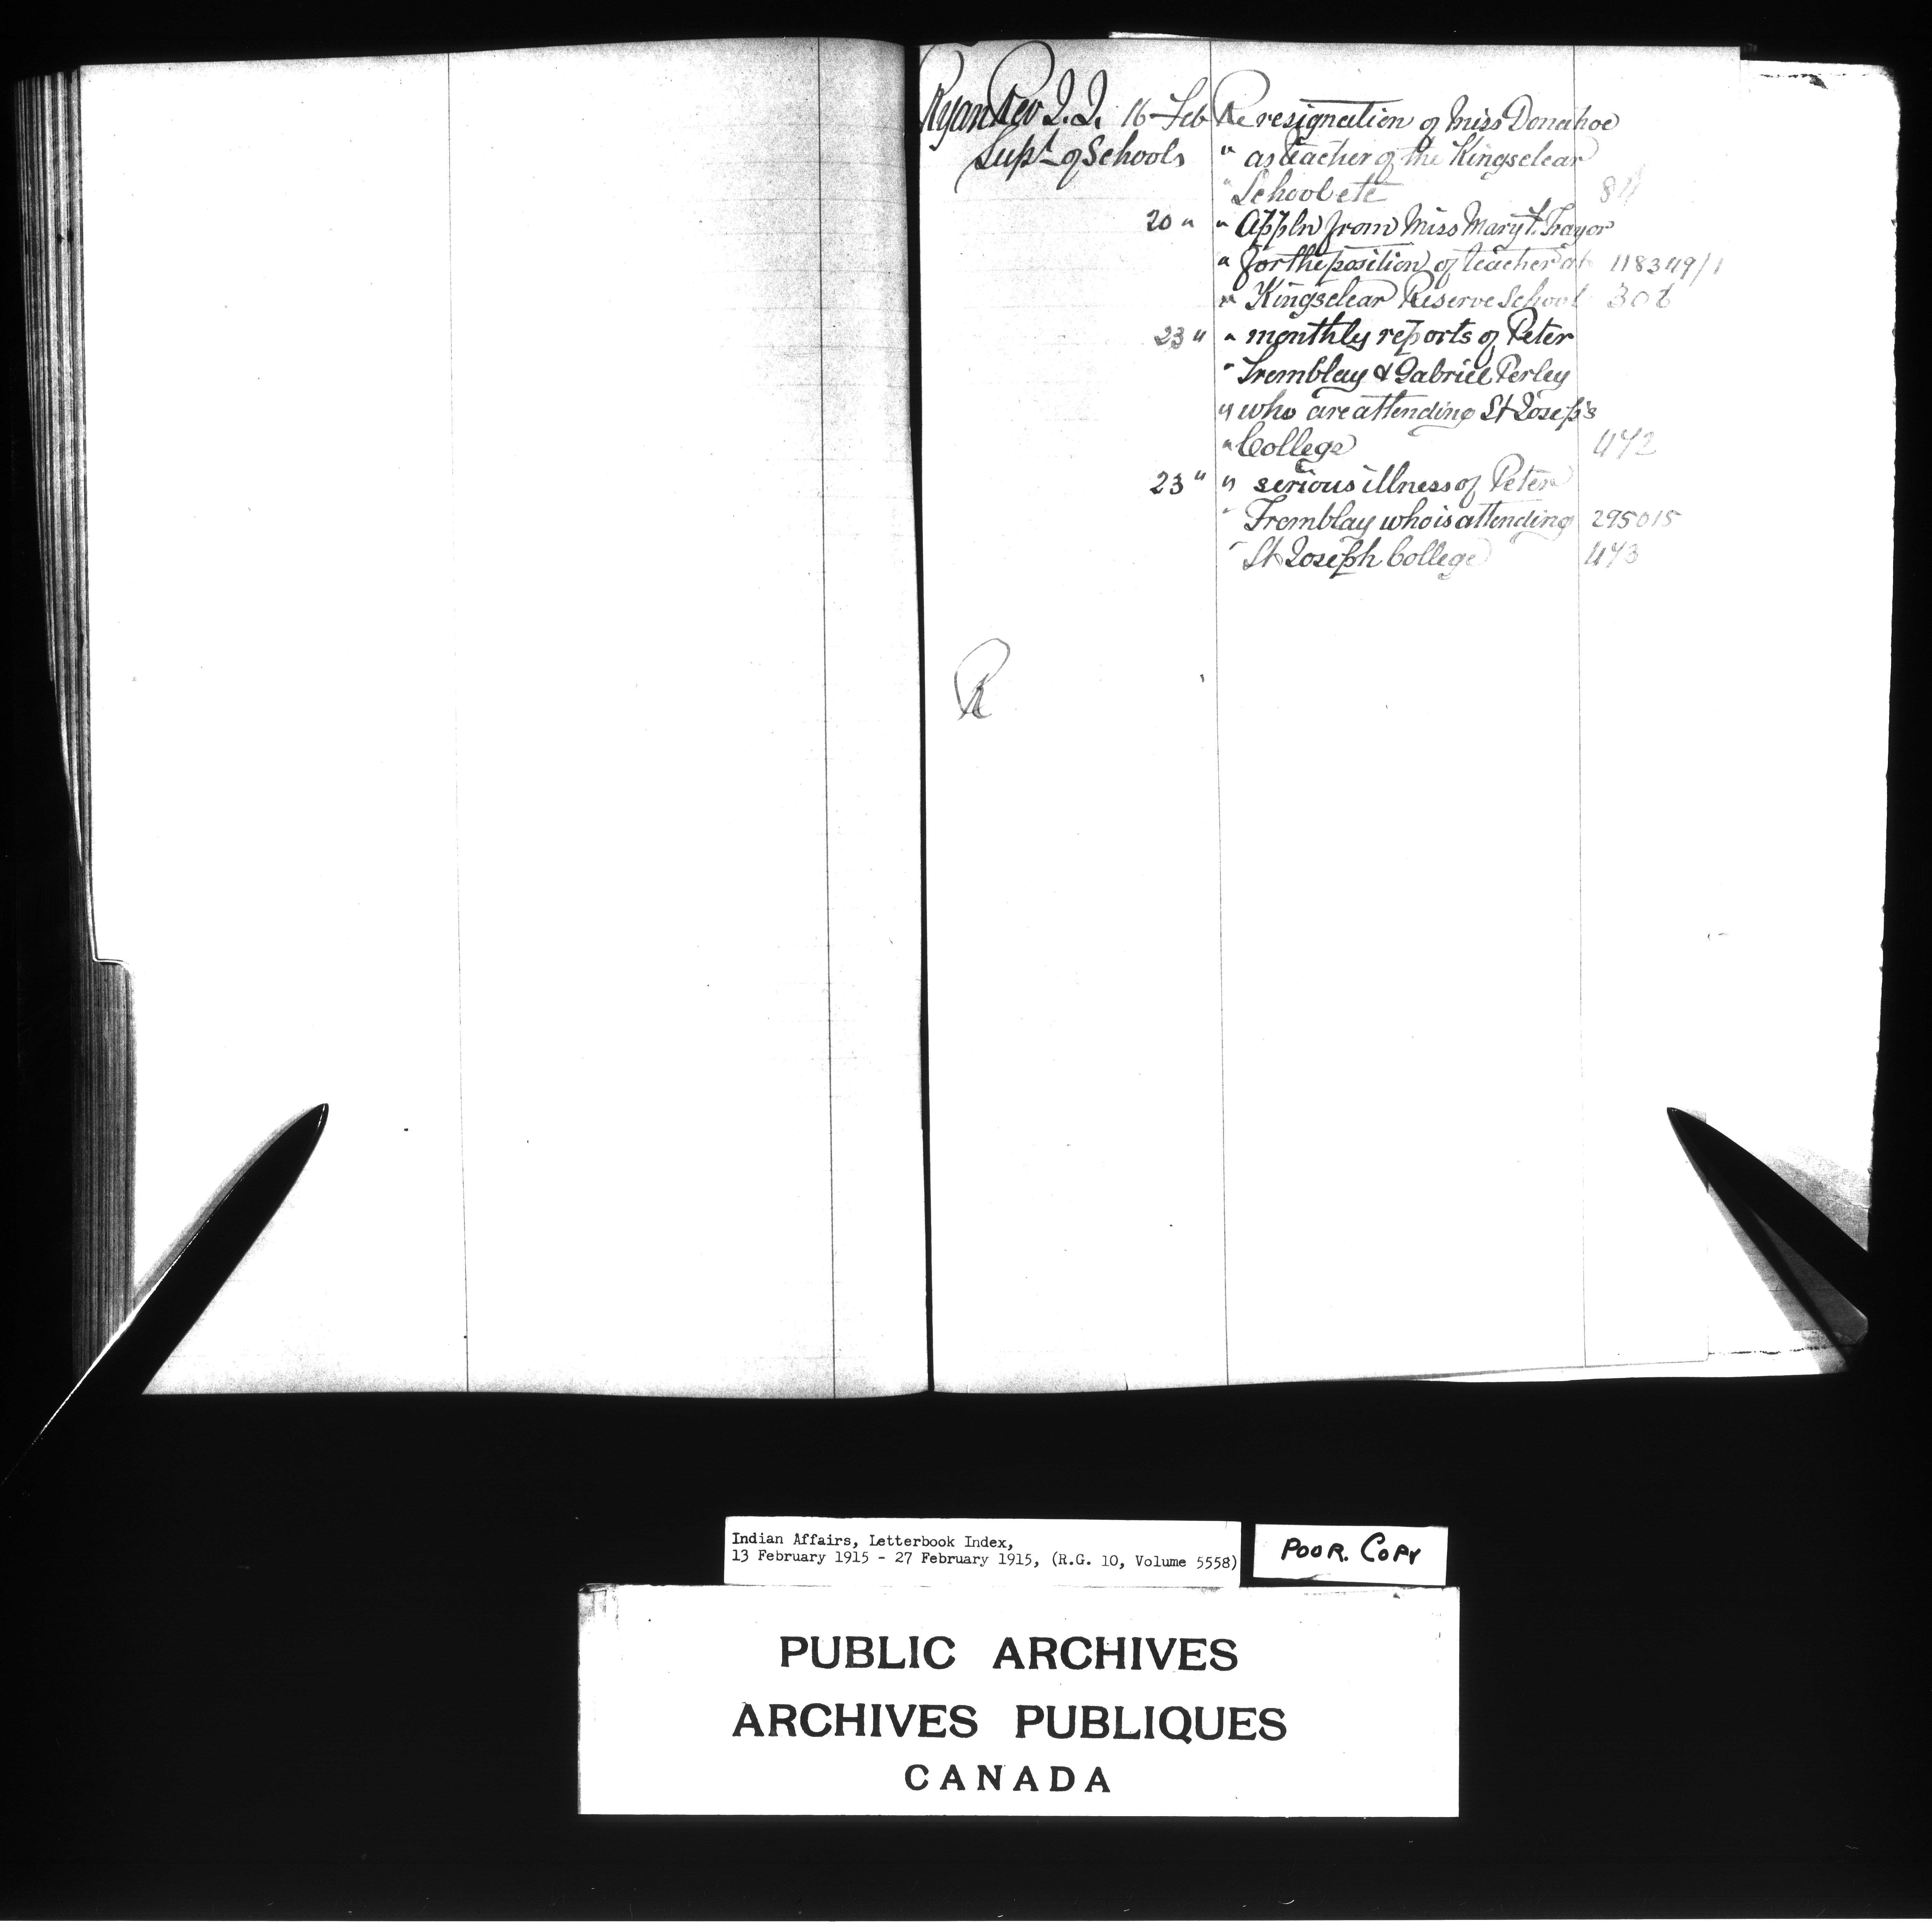 Ryan Rev J. J. 16 Feb Re resignation of Miss Donahoe
Supt of Schools " as teacher of the Kingsclear
" School etc
20 " " Appln from Miss Mary T. Traynor
" for the position of teacher at 118349/1
" Kingsclear Reserve School 306
23 " " monthly reports of Peter
" Tremblay & Gabriel Perley
" who are attending St Joseph's
" College 442
23 " " serious illness of Peter
" Tremblay who is attending 295015
" St Joseph College 443
R
Indian Affairs, Letterbook Index,
13 February 1915 - 27 February 1915, (R.G. 10, Volume 5558)
POOR. COPY
PUBLIC ARCHIVES
ARCHIVES PUBLIQUES
CANADA